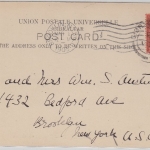 UNION POSTALE UNIVERSELLE
POST CARD
THE ADDRESS ONLY TO BE WRITTEN ON THIS SIDE
and Mrs Wm. S. Austin
1432 Bedford Ave
Brooklyn
New York U.S.A